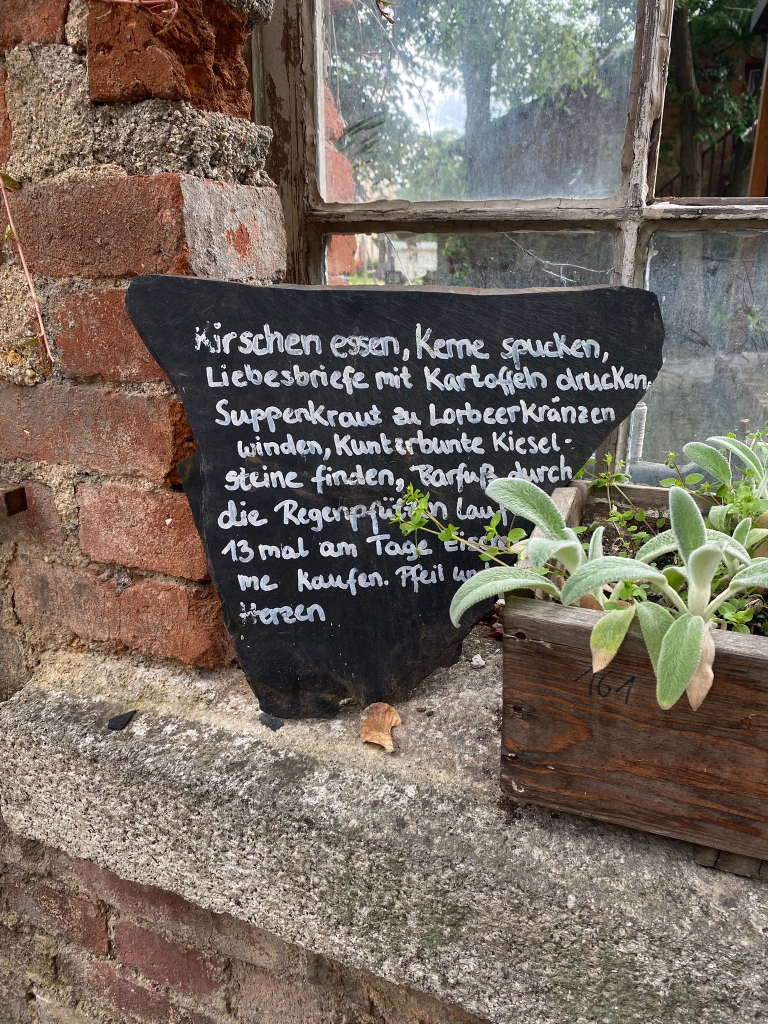 Kirschen essen, Kerne spucken,
Liebesbriefe mit Kartoffeln drucken,
Suppenkraut zu Lorbeerkränzen
winden, Kunterbunte Kiesel-
steine finden, Barfuß durch
die Regenpfützen lauf
13 mal am Tage Eiscr
me kaufen. Pfeil und
Herzen
161